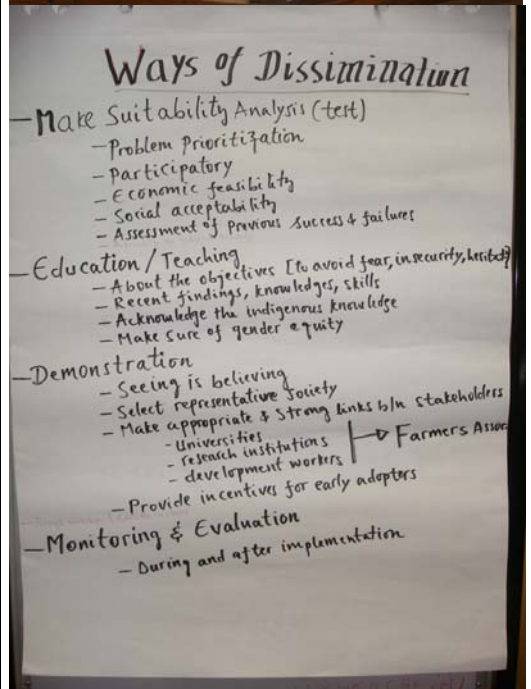 Ways of Dissimination
- Make Suitability Analysis (test)
- Problem Prioritization
- Participatory
- Economic feasibility
- Social acceptability
- Assessment of previous success & failures
- Education / Teaching
- About the objectives [to avoid fear, insecurity,
- Recent findings, knowledges, skills
- Acknowledge the indigenous knowledge
- Make sure of gender equity
- Demonstration
- Seeing is believing
- Select representative society
- Make appropriate & strong links b/n stakeholders
- Universities
- research institutions
- development workers
Farmers Assoc
- Provide incentives for early adopters
- Monitoring & Evaluation
- During and after implementation